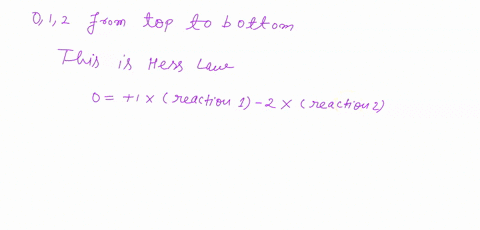 0, 1, 2 from top to bottom
This is Hess Law
0 = +1 × (reaction 1) - 2 × (reaction 2)